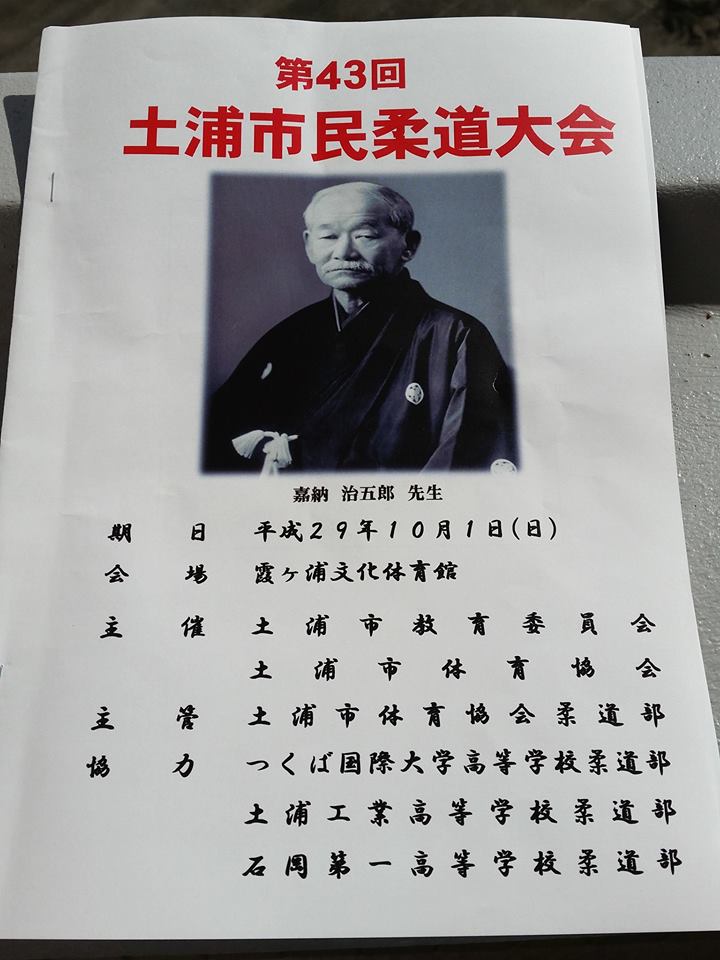 第43回
土浦市民柔道大会
嘉納 治五郎 先生
期日 平成29年10月1日(日)
会場 霞ヶ浦文化体育館
主催 土浦市教育委員会
土浦市体育協会
主管 土浦市体育協会柔道部
協力 つくば国際大学高等学校柔道部
土浦工業高等学校柔道部
石岡第一高等学校柔道部